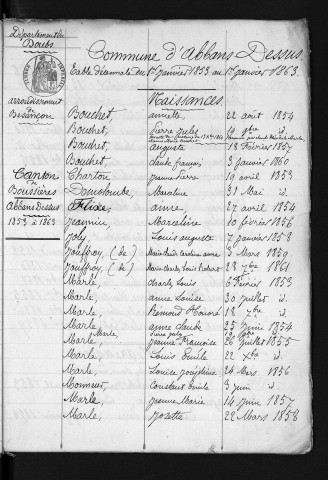 Département du
Doubs
Commune d'Abbans Dessus.
Table décennale du 1er Janvier 1853 au 1er Janvier 1863.
arrondissement
de
Besançon
Canton
de
Boussières
Abbans Dessus
1853 à 1863
Naissances.
Bouchet, annette, 22 août 1854
Bouchet, Pierre Jules 19 9bre d.
Bouchet, auguste 18 Février 1857
Bouchet, claude françois 3 Janvier 1860
Charton Jeanne 19 avril 1853
Marceline 31 Mai d.
Félixe, aimée, 27 avril 1854
Jeannin, Marceline 10 février 1856
Joly, Louis auguste 7 Janvier 1858
Jouffroy, (de) Marie caroline anne 5 Mars 1859
Jouffroy, (de) Marie charles Louis 28 7bre 1861
Marle, charles Louis 6 Février 1853
Marle, anne Louise 30 juillet d.
Marle, Rémond honoré 18 7bre d.
Marle, anne claude 25 Juin 1854
Marle
Marle, Jeanne Françoise 26 Juillet 1855
Marle, Louis Emile 22 Xbre d.
Marle, Louise Joséphine 24 Mars 1856
Monnier, constant Emile 3 Juin d.
Marle, Jeanne Marie 14 Juin 1857
Marle, Josette 22 Mars 1858